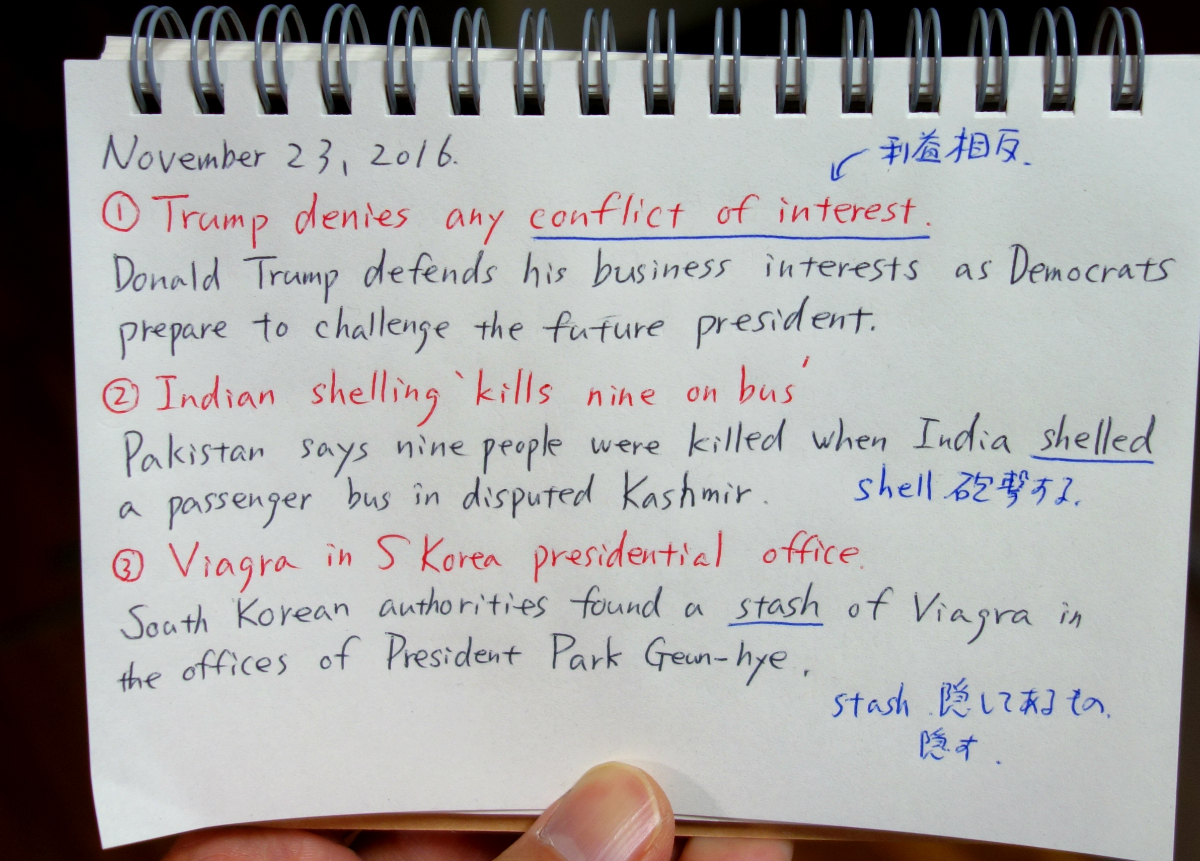 November 23, 2016.
利益相反.
① Trump denies any conflict of interest.
Donald Trump defends his business interests as Democrats
prepare to challenge the future president.
② Indian shelling 'kills nine on bus'
Pakistan says nine people were killed when India shelled
a passenger bus in disputed Kashmir.
shell 砲撃する.
③ Viagra in S Korea presidential office.
South Korean authorities found a stash of Viagra in
the offices of President Park Geun-hye.
stash 隠してあるもの.
隠す.